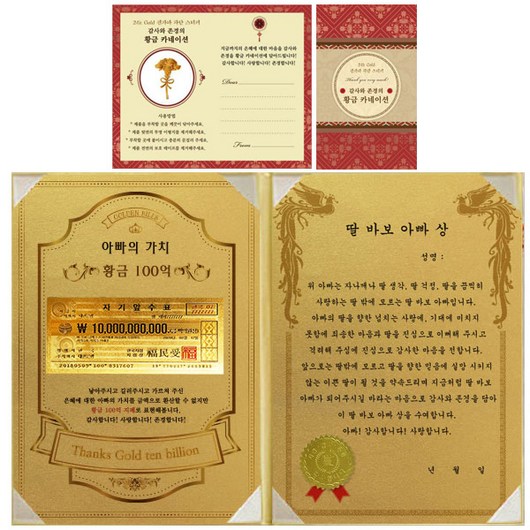 24k Gold 전자파 차단 스티커
감사와 존경의
황금 카네이션
사용방법
지금까지의 은혜에 대한 마음을 감사와
존경을 황금 카네이션에 담아드립니다!
감사합니다! 사랑합니다! 존경합니다!
Dear
From
24k Gold
전자파 차단 스티커
Thank you very much!
감사와 존경의
황금 카네이션
GOLDEN BILLS
아빠의 가치
황금 100억
자기앞수표
₩ 10,000,000,000
福民受
낳아주시고 길러주시고 가르쳐 주신
은혜에 대한 아빠의 가치를 금액으로 환산할 수 없지만
황금 100억 지폐로 표현해봅니다.
감사합니다! 사랑합니다! 존경합니다!
Thanks Gold ten billion
딸 바보 아빠 상
성명 :
위 아빠는 자나깨나 딸 생각, 딸 걱정, 딸을 끔찍히
사랑하는 딸 밖에 모르는 딸 바보 아빠입니다.
아빠의 딸을 향한 넘치는 사랑에, 기대에 미치지
못함에 죄송한 마음과 딸을 진심으로 이해해 주시고
격려해 주심에 진심으로 감사한 마음을 전합니다.
앞으로는 딸밖에 모르고 딸을 향한 믿음에 실망 시키지
않는 이쁜 딸이 될 것을 약속드리며 지금처럼 딸 바보
아빠가 되어주시길 바라는 마음으로 감사와 존경을 담아
이 딸 바보 아빠 상을 수여합니다.
아빠! 감사합니다! 사랑합니다.
년 월 일